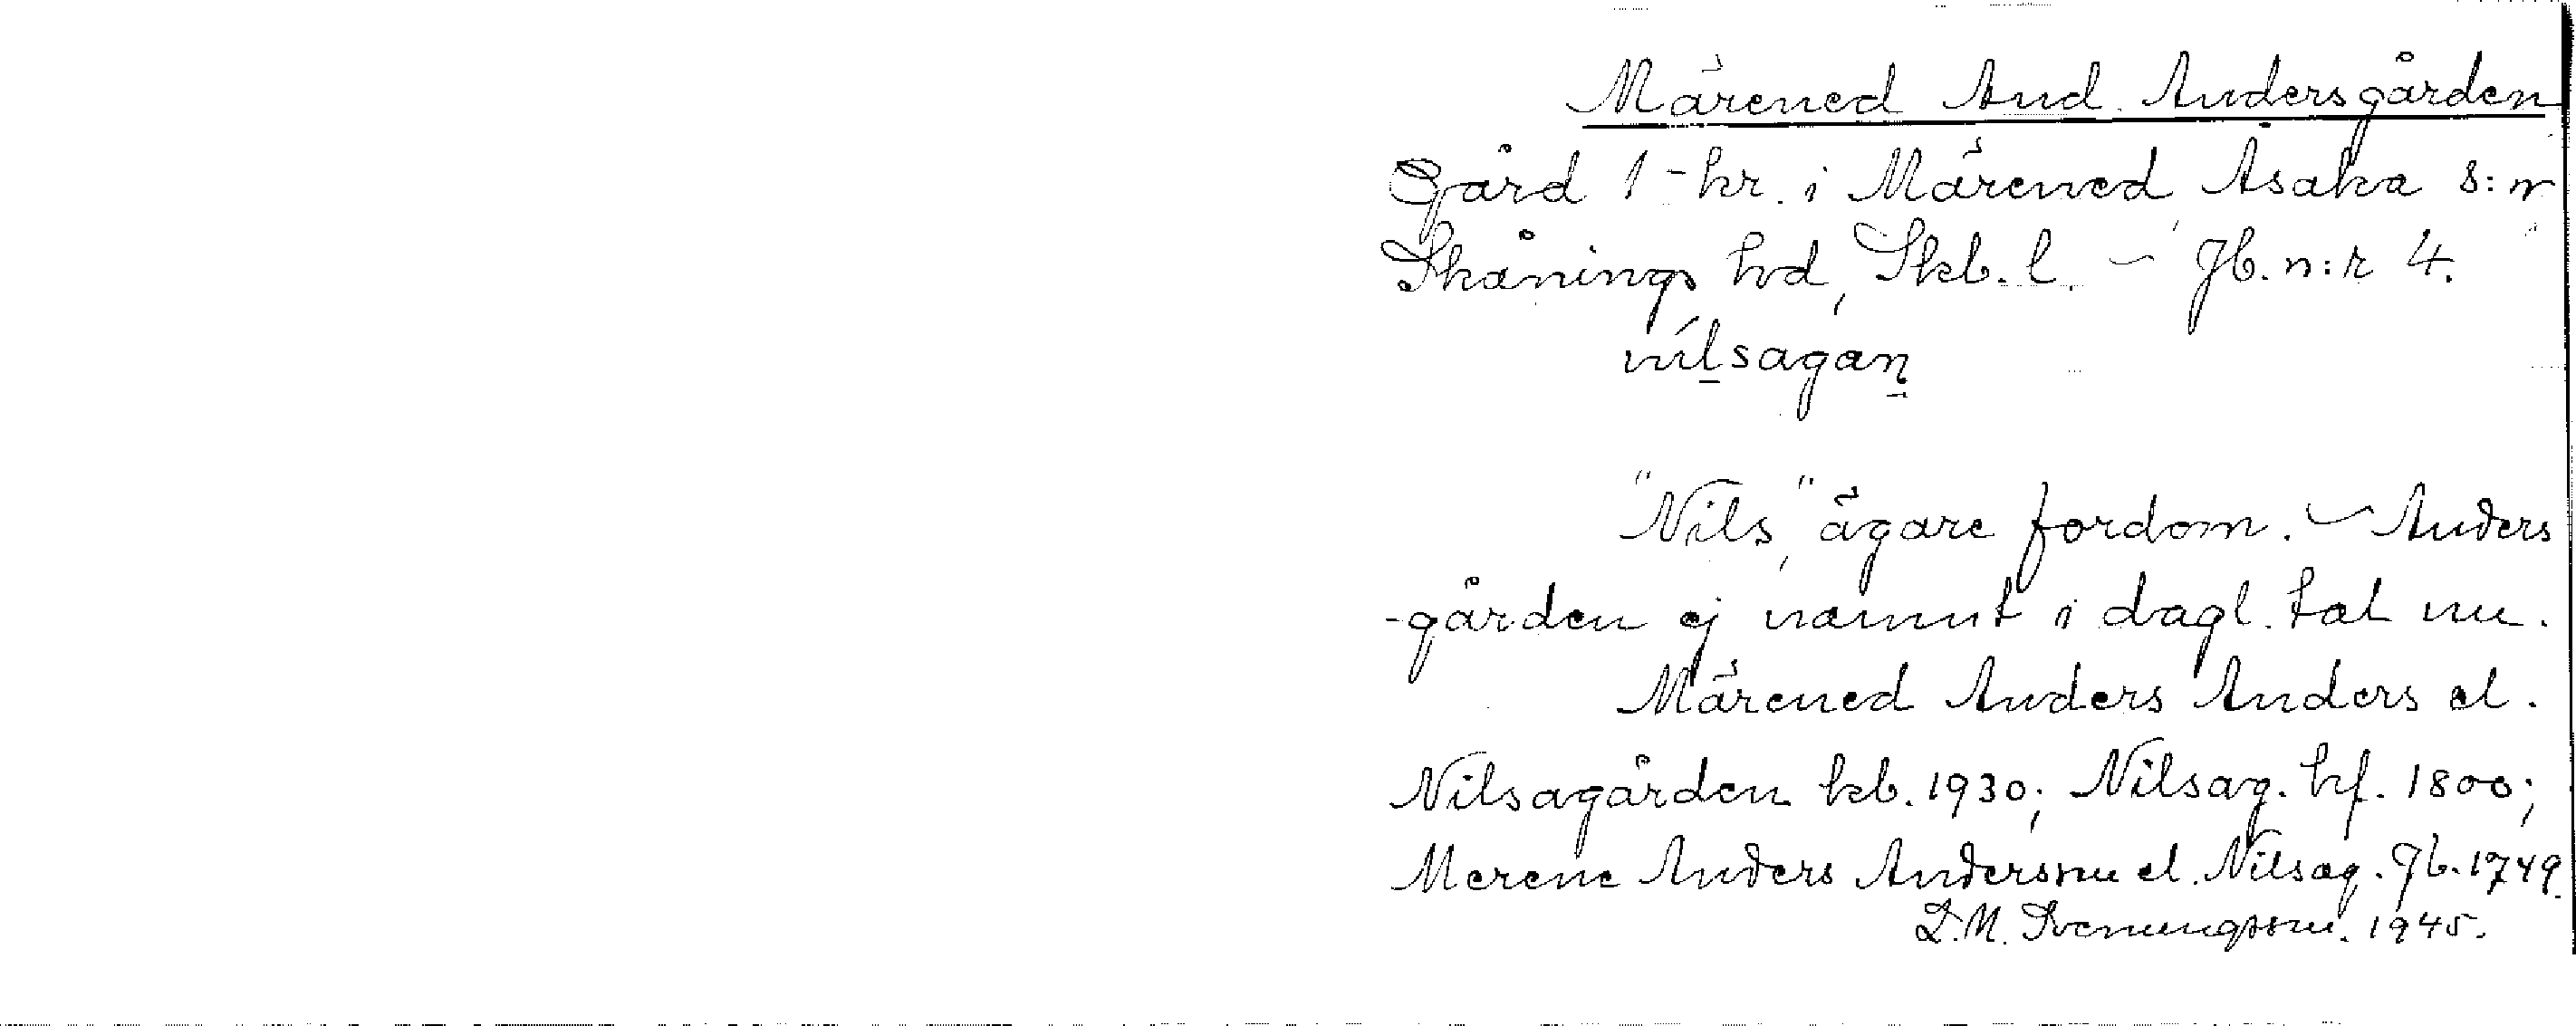 Märened And. Andersgården
Gård 1 - hr. i Märened, Åsaka s:n
Skånings hd, Skb. l. - Jb. n:r 4.
nílsagan
"Nils", ägare fordom. - Anders
-gården ej nämnt i dagl. tal nu.
Märened Anders Anders el.
Nilsagården kb. 1930; Nilsag. hf. 1800;
Merene Anders Andersnu el. Nilsag. Jb. 1749.
L.M. Svenungsson. 1945.